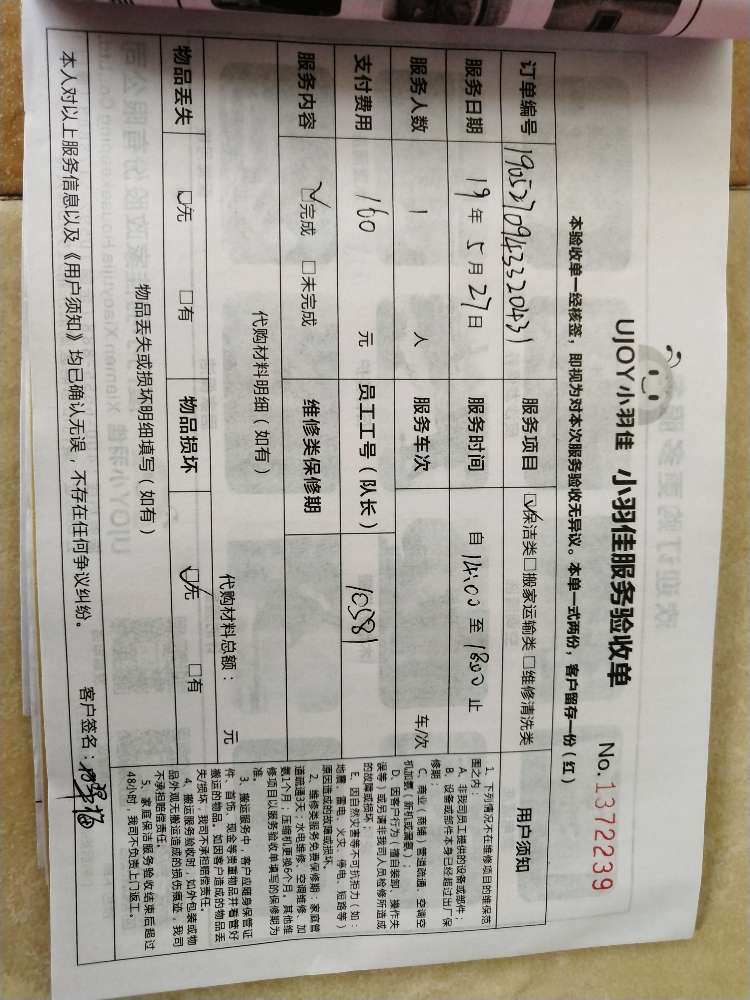 UJOY小羽佳 小羽佳服务验收单 No.1372239
本验收单一经核签，即视为对本次服务验收无异议。本单一式两份，客户留存一份（红）
订单编号 1905270943320431 服务项目 保洁类 搬家运输类 维修清洗类
服务日期 19年5月27日 服务时间 自 14:00 至 1800 止
服务人数 1 人 服务车次 车/次
支付费用 160 元 员工工号（队长） 10581
服务内容 完成 未完成 维修类保修期
代购材料明细（如有）
代购材料总额： 元
物品丢失 无 有 物品损坏 无 有
物品丢失或损坏明细填写（如有）
本人对以上服务信息以及《用户须知》均已确认无误，不存在任何争议纠纷。 客户签名：
用户须知
1、下列情况不在维修项目的维保范
围之内：
A、非我司员工提供的设备或部件；
B、设备或部件本身已经超过出厂保
修期；
C、商业（商铺）管道疏通、空调空
机加氨（新机或漏氨）；
D、因客户行为（擅自装卸、操作失
误等）或另请非我司人员检修所造成
的故障或损坏；
E、因自然灾害等不可抗拒力（如：
地震、雷电、火灾、停电、短路等）
原因造成的故障或损坏。
2、维修类服务免费保修期：家庭管
道疏通3天；水电维修、空调维修、加
氨1个月；压缩机更换6个月。其他维
修项目以服务验收单填写的保修期为
准。
3、搬运服务中，客户应随身保管证
件、首饰、现金等贵重物品并看管好
搬运的物品。如因客户造成的物品丢
失/损坏，我司不承担赔偿责任。
4、搬运服务验收时，如外包装或物
品外观无搬运造成的损伤痕迹，我司
不承担赔偿责任。
5、家庭保洁服务验收结束后超过
48小时，我司不负责上门返工。